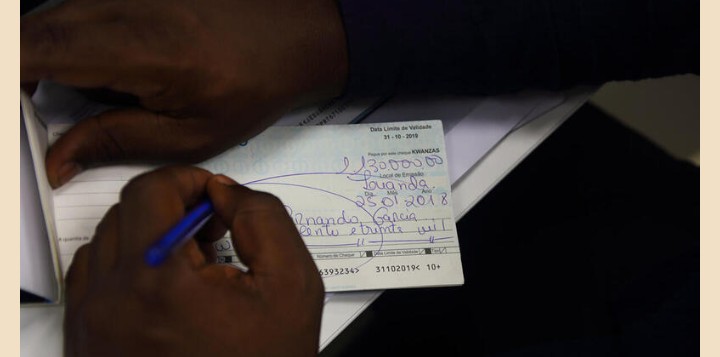 Data Limite de Validade
31 - 10 - 2019
Pague por este cheque KWANZAS
130.000,00
Local de Emissão
Luanda.
Dia Mês Ano
25 01 2018
Garcia
cento e trinta mil
A quantia de
Número de Cheque Data Limite de Validade
6393234> 31102019< 10+